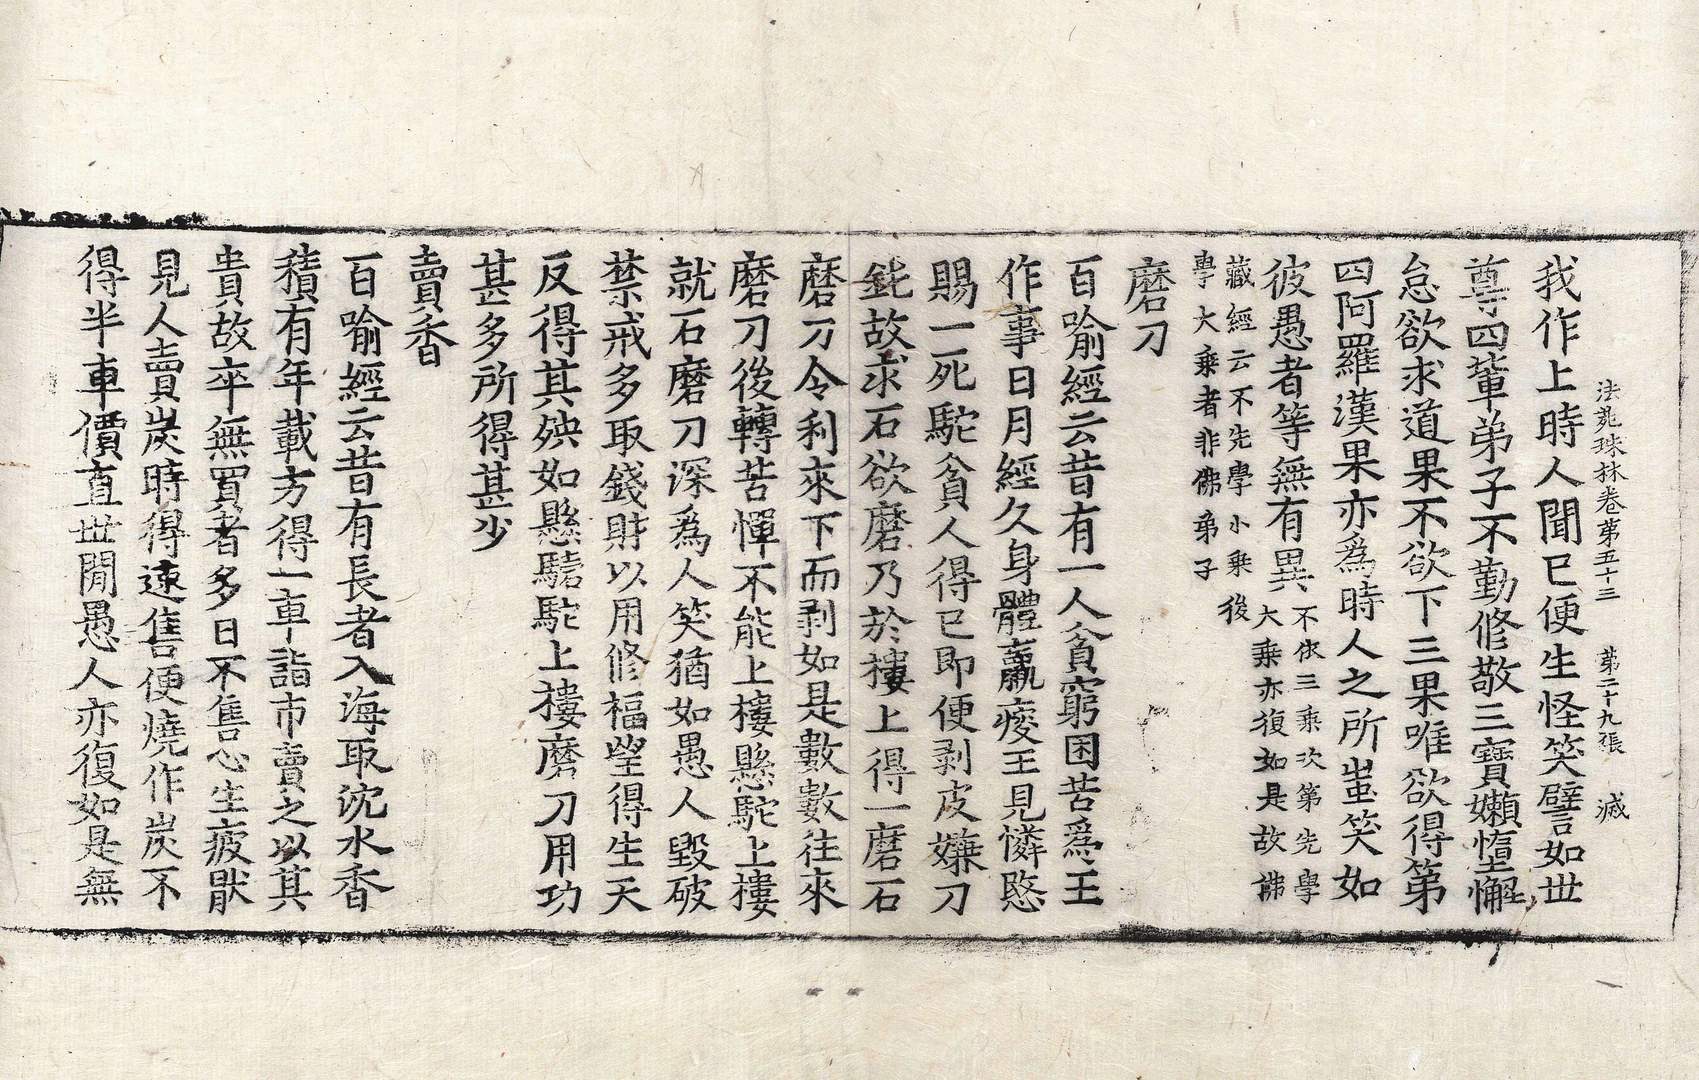 法苑珠林卷第五十三　第二十九張　滅
我作上時人聞已便生怪笑譬如世
尊四輩弟子不勤修敬三寶嬾惰懈
怠欲求道果不欲下三果唯欲得第
四阿羅漢果亦爲時人之所蚩笑如
彼愚者等無有異
不依三乘次第先學
大乘亦復如是故佛
藏經云不先學小乘後
學大乘者非佛弟子
磨刀
百喻經云昔有一人貧窮困苦爲王
作事日月經久身體羸瘦王見憐愍
賜一死駝貧人得已即便剥皮嫌刀
鈍故求石欲磨乃於樓上得一磨石
磨刀令利來下而剥如是數數往來
磨刀後轉苦憚不能上樓懸駝上樓
就石磨刀深爲人笑猶如愚人毀破
禁戒多取錢財以用修福望得生天
反得其殃如懸驝駝上樓磨刀用功
甚多所得甚少
賣香
百喻經云昔有長者入海取沈水香
積有年載方得一車詣市賣之以其
貴故卒無買者多日不售心生疲厭
見人賣炭時得速售便燒作炭不
得半車價直世閒愚人亦復如是無